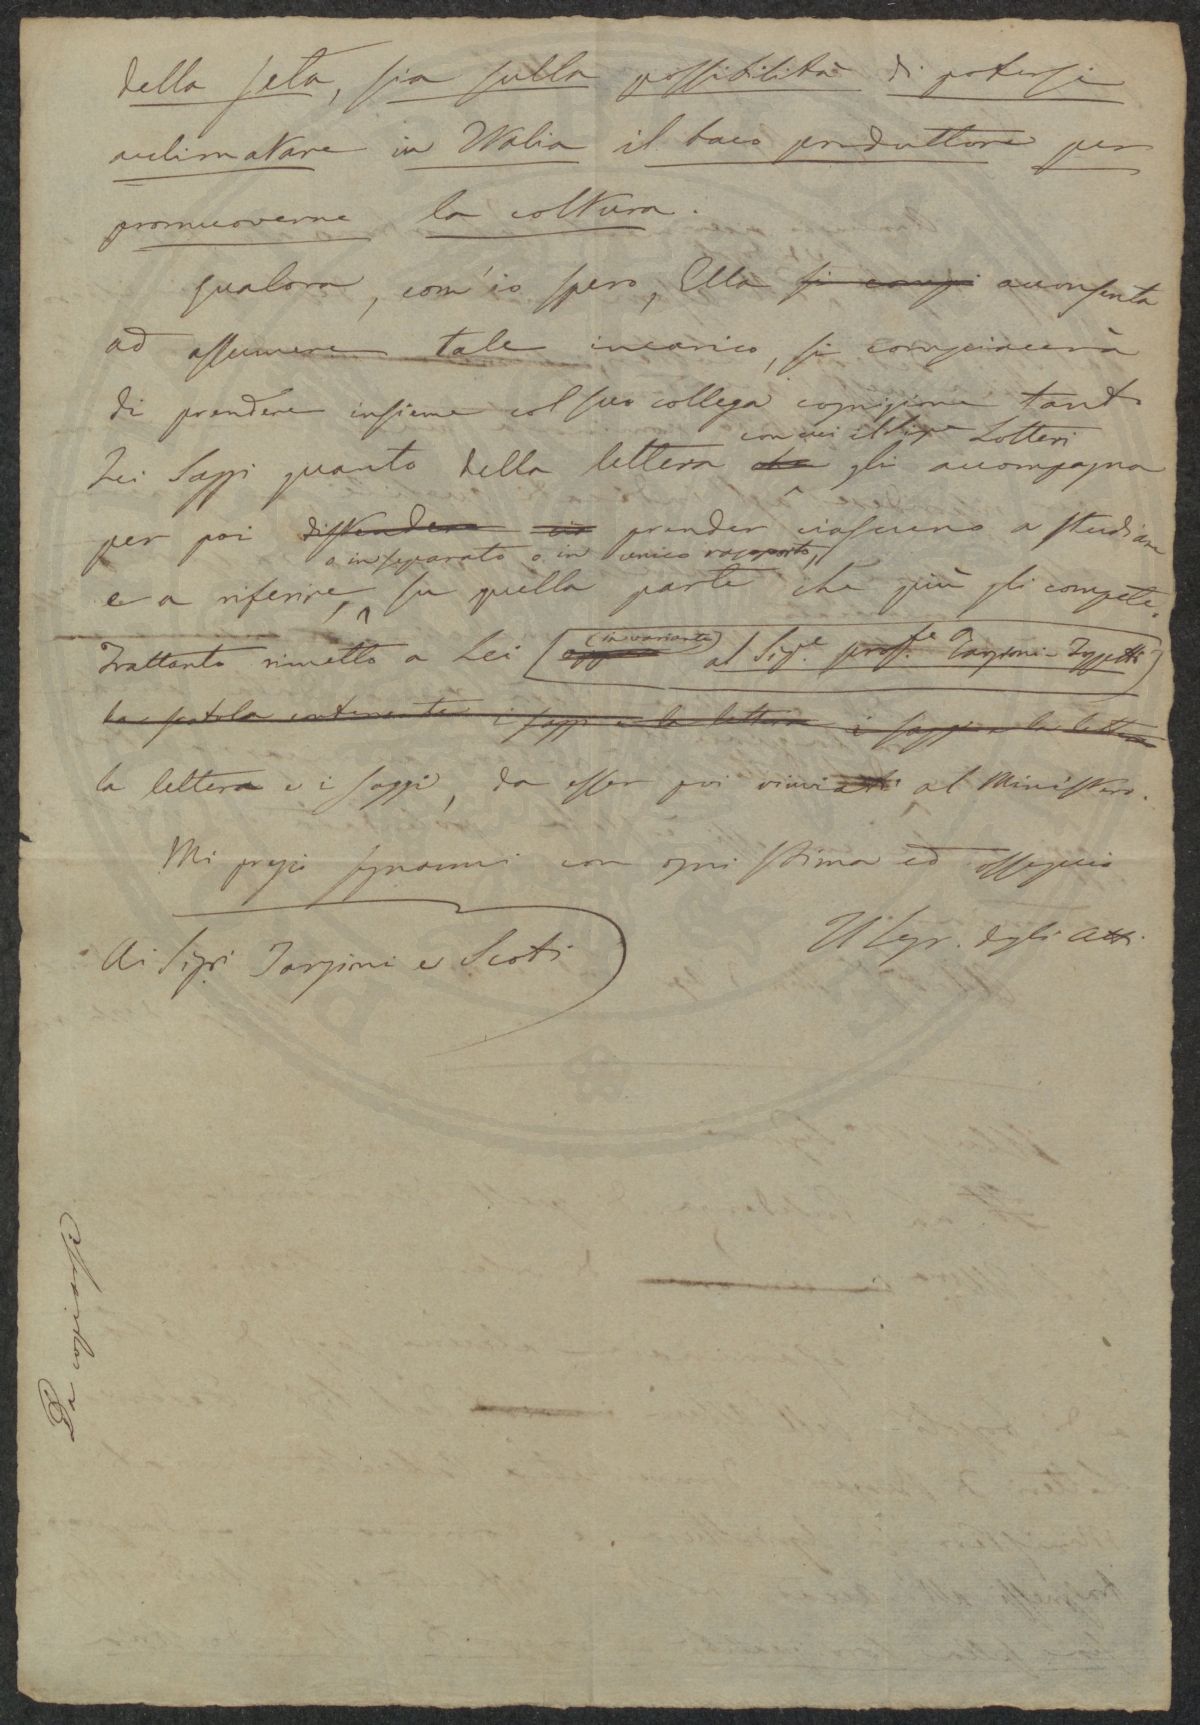 della seta, sia sulla possibilità di potersi
acclimatare in Italia il baco produttore per
promuoverne la coltura.
Qualora, com'io spero, Ella si compi acconsenta
ad assumere tale incarico, si compiacerà
di prendere insieme col suo collega cognizione tanto
con cui il Sigre Lotteri
dei Saggi quanto della lettera che gli accompagna
per poi distendere prender ciascuno a studiare
o in separato o in unico rapporto,
e a riferire, su quella parte che più gli compete.
Trattanto rimetto a Lei (in variante) al Sigr. profe. Targioni-Tozzetti
la scatola contenente i saggi e la lettera i saggi e la lettera
la lettera e i saggi, da esser poi rinviati al Ministero.
Mi pregio segnarmi con ogni stima ed ossequio
Il Segr. degli Atti
Ai Sigri Targioni e Scoti
Da copiarsi